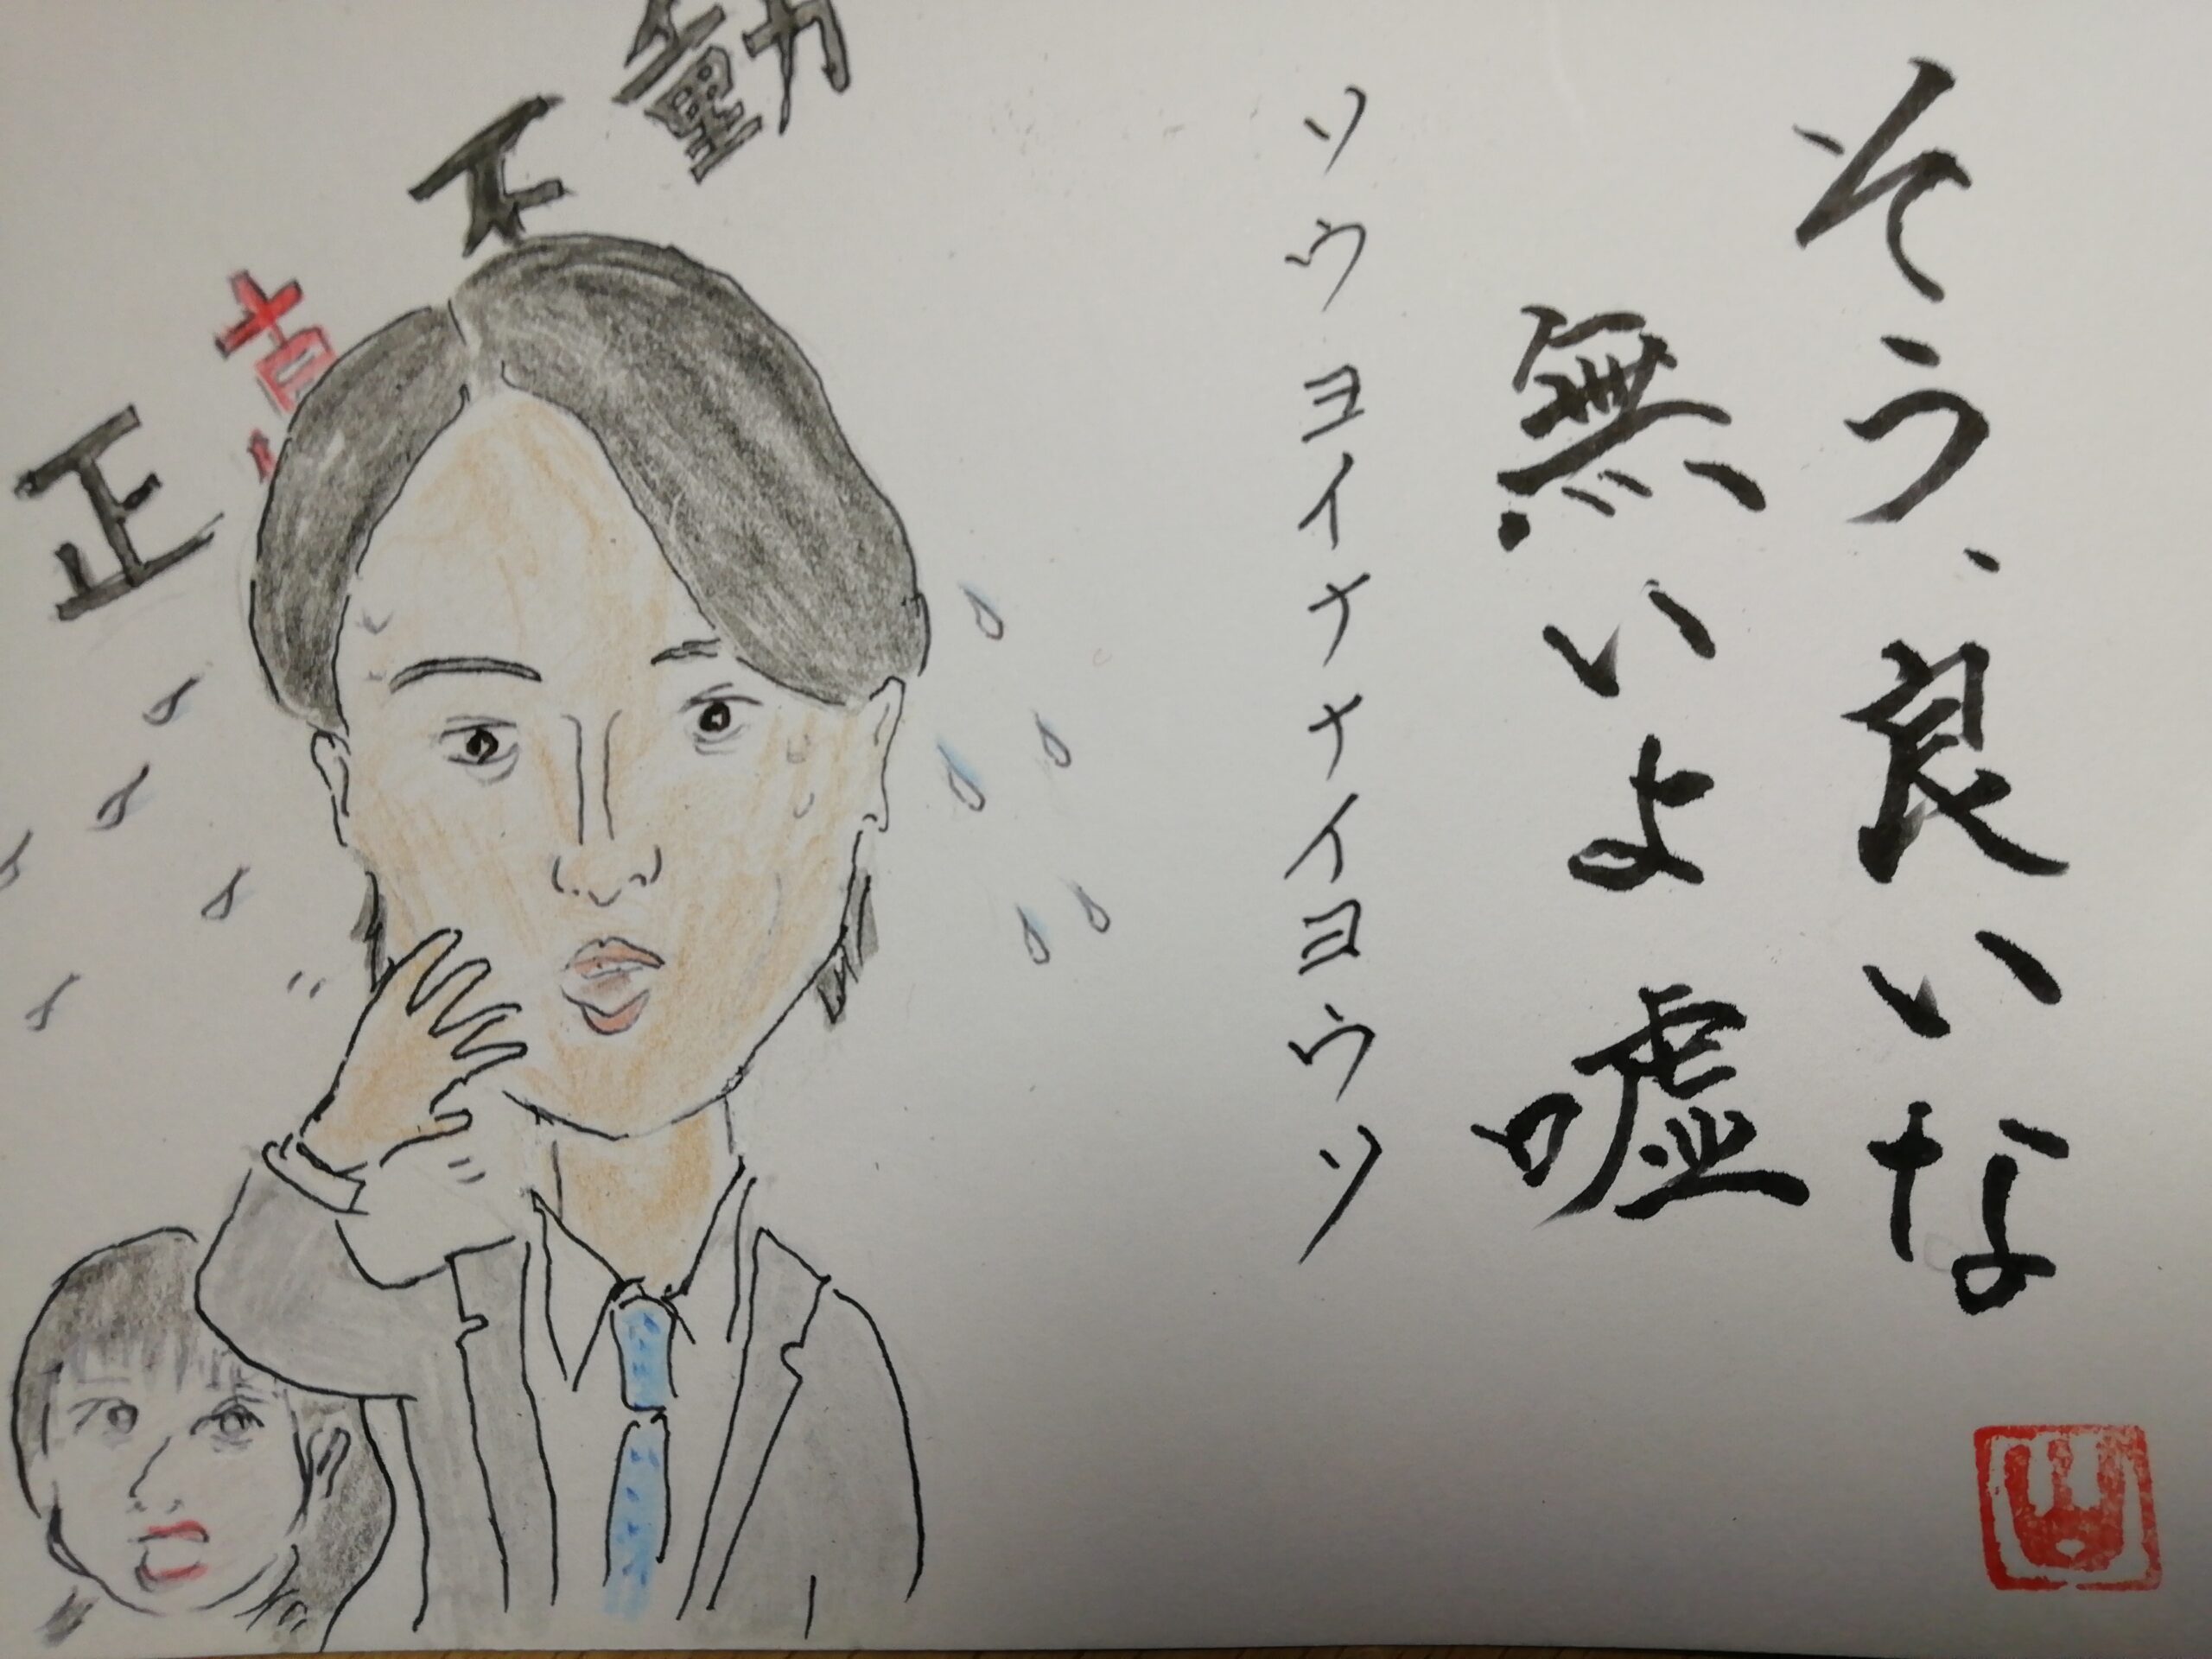 そう、良いな
無いよ嘘
ソウヨイナナイヨウソ
正直不動